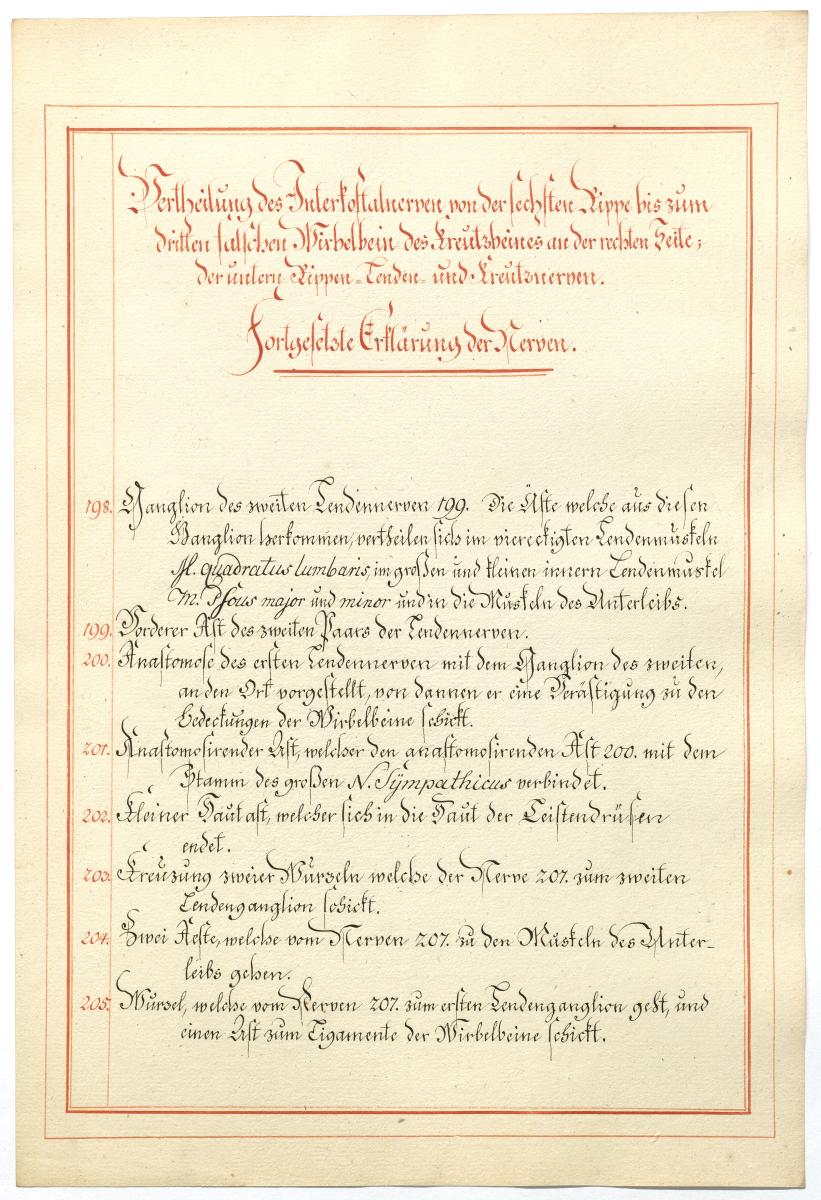 Vertheilung des Interkostalnerven von der sechsten Rippe bis zum
dritten falschen Wirbelbein des Kreutzbeines an der rechten Seite;
der untern Rippen-Lenden- und Kreutznerven.
Fortgesetzte Erklärung der Nerven.
198. Ganglion des zweiten Lendennerven 199. Die Äste welche aus diesen
Ganglion herkommen, vertheilen sich im viereckigten Lendenmuskeln
M. quadratus lumbaris, im großen und kleinen innern Lendenmuskel
M. Psous major und minor und in die Muskeln des Unterleibs.
199. Vorderer Ast des zweiten Paars der Lendennerven.
200. Anastomose des ersten Lendennerven mit dem Ganglion des zweiten,
an den Ort vorgestellt, von dannen er eine Verästigung zu den
Bedeckungen der Wirbelbeine schickt.
201. Anastomosirender Ast, welcher den anastomosirenden Ast 200. mit dem
Stamm des großen N. Sÿmpathicus verbindet.
202. Kleiner Hautast, welcher sich in die Haut der Leistendrüsen
endet.
203. Kreuzung zweier Wurzeln welche der Nerve 207. zum zweiten
Lendenganglion schickt.
204. Zwei Aeste, welche vom Nerven 207. zu den Muskeln des Unter-
leibs gehen.
205. Wurzel, welche vom Nerven 207. zum ersten Lendenganglion geht, und
einen Ast zum Ligamente der Wirbelbeine schickt.